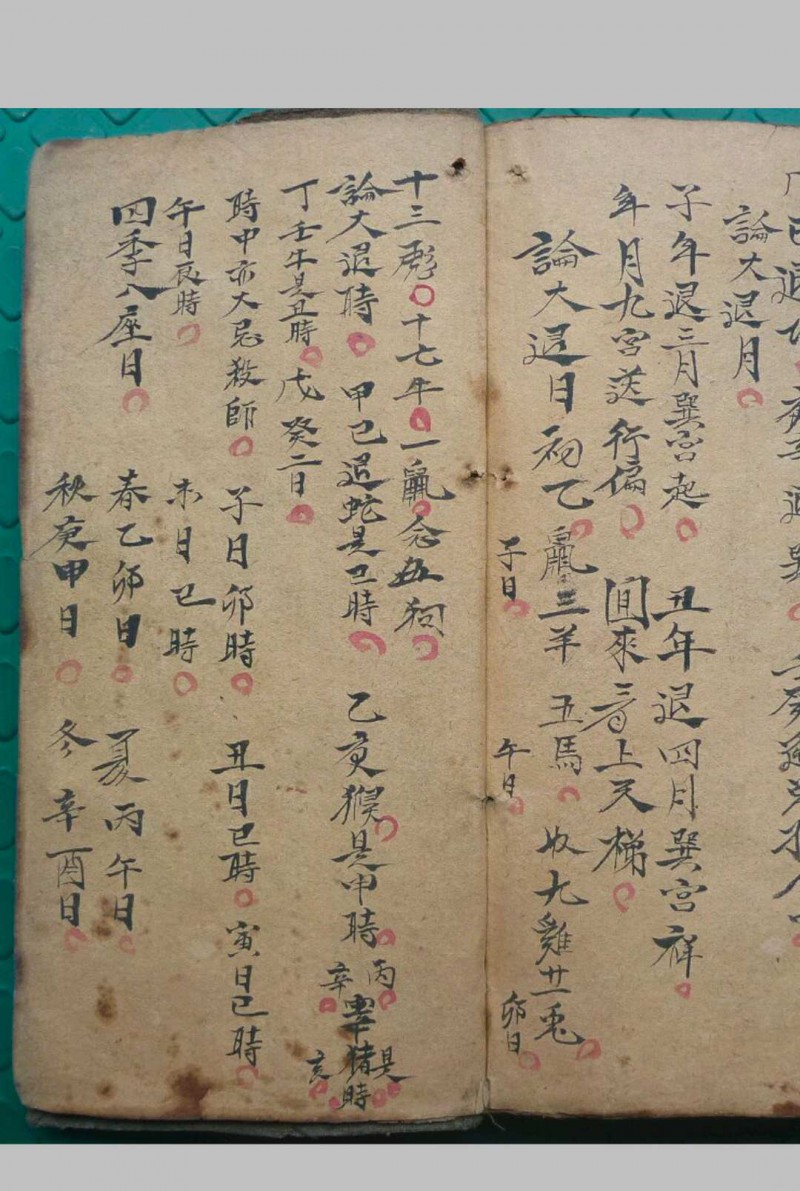 論大退月
子年退三月巽宮起 丑年退四月巽宮祥
年月九宮送行偏 回來 上天梯
論大退日 初乙鼠 三羊 五馬 九雞廿一兎
子日 午日 卯日
十三 十七牛 一鼠念五狗
論大退時 甲已退蛇是巳時 乙庚猴是申時 丙辛 猪是亥時
丁壬牛是丑時 戊癸二日
時中亦大忌殺師 子日卯時 丑日巳時 寅日巳時
午日辰時 未日巳時
四季八座日 春乙卯日 夏丙午日
秋庚申日 冬辛酉日